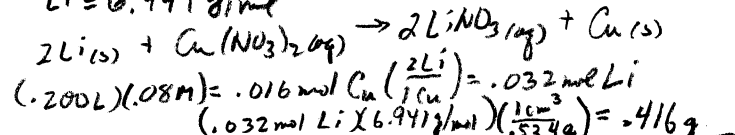 Li = 6.941 g/mol
2Li(s) + Cu(NO3)2(aq) → 2LiNO3(aq) + Cu(s)
(.200L)(.08M) = .016 mol Cu (2Li/1Cu) = .032 mol Li
(.032 mol Li)(6.941g/mol)(1cm³/.534g) = .416g